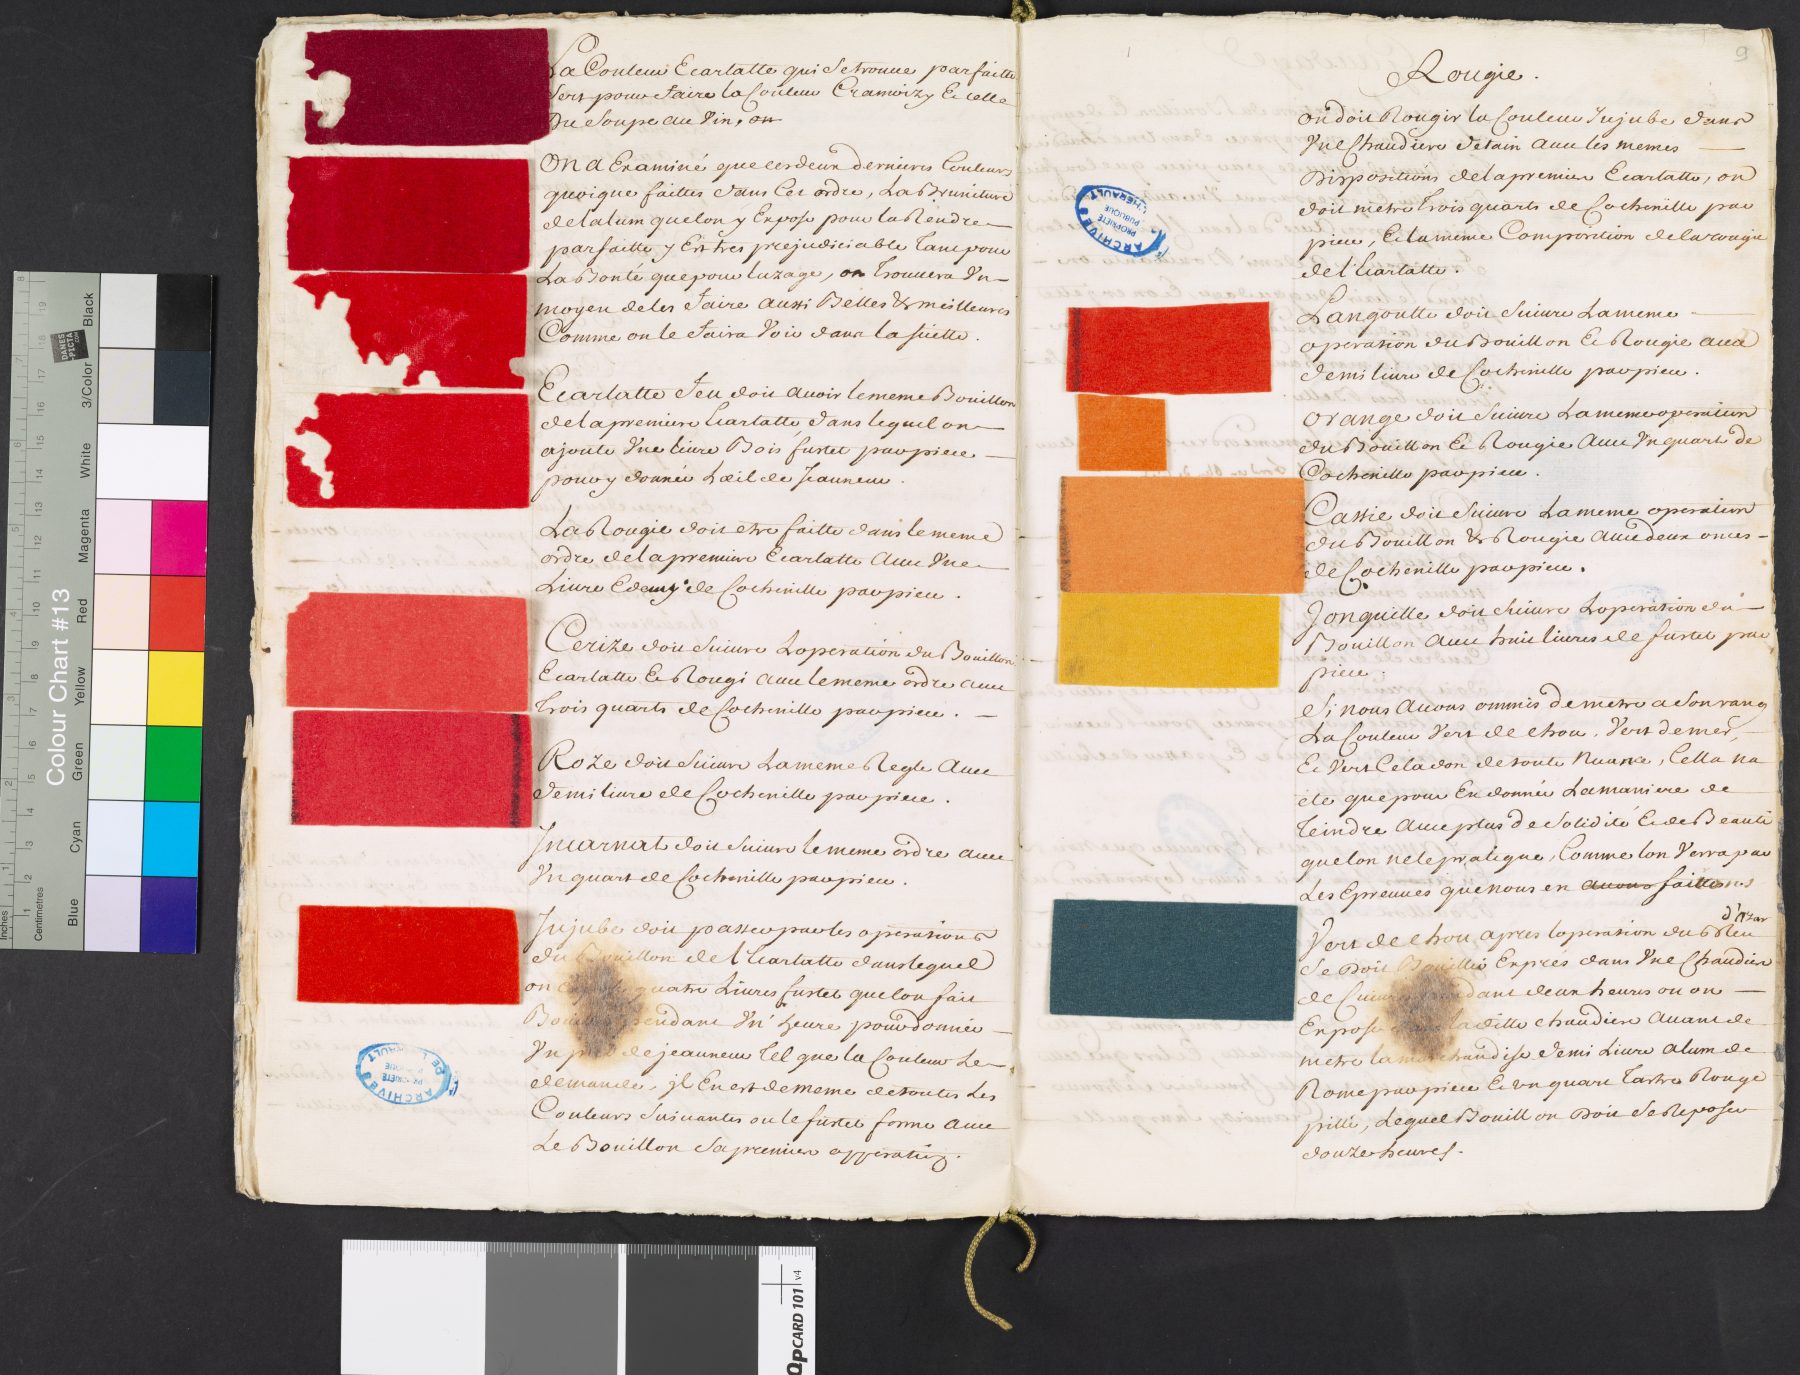 La Couleur Ecarlatte qui se trouve parfaitte
sert pour faire la Couleur Cramoizy Et celle
Du Soupe au Vin, on
On a Examiné que ces deux dernieres Couleurs
quoique faittes dans Cet ordre, La Bruniture
de l'alum que lon y Expose pour la Rendre
parfaitte y Est tres prejudiciable Tant pour
La Bonté que pour luzage, on Trouvera Un
moyen de les faire aussi Belles & meilleures
Comme on le faira Voir dans la suitte.
Ecarlatte feu doit avoir le meme Bouillon
de la premiere Ecarlatte, dans lequel on
ajoute Une livre Bois fustet par piece
pour y donner L'œil de Jeauneur.
La Rougie doit etre faitte dans le meme
ordre de la premiere Ecarlatte avec Une
Livre Et demy de Cochenille par piece.
Cerize doit suivre L'operation du Bouillon
Ecarlatte Et Rougi avec le meme ordre avec
Trois quarts de Cochenille par piece.
Roze doit suivre La meme Regle avec
demi livre de Cochenille par piece.
Incarnat doit suivre le meme ordre avec
Un quart de Cochenille par piece.
Jujube doit passer par les operations
du Bouillon de l'Ecarlatte dans lequel
on quatre Livres fustet que lon fait
pendant Un' heure pour donner
Un de jeauneur Tel que la Couleur Le
demande, il En est de meme de toutes Les
Couleurs Suivantes ou le fustet forme avec
Le Bouillon sa premiere opperation.
9
Rougie.
on doit Rougir la Couleur Jujube dans
Une Chaudiere d'etain avec les memes
Dispositions de la premiere Ecarlatte, on
doit metre Trois quarts de Cochenille par
piece, Et la meme Composition de la rougie
de l'Ecarlatte.
Langoutte doit suivre La meme
operation du Bouillon Et Rougie avec
demi livre de Cochenille par piece.
Orange doit suivre La meme operation
du Bouillon Et Rougie avec Un quart de
Cochenille par piece.
Cassie doit suivre La meme operation
du Bouillon & Rougie avec deux onces
de Cochenille par piece.
Jonquille doit suivre L'operation du
Bouillon avec huit livres de fustet par
piece.
Si nous avons ommis de metre a son rang
La Couleur Vert de chou, Vert de mer,
Et Vert Celadon de toute Nuance, Cella na
ete que pour En donner La maniere de
Teindre avec plus de Solidité Et de Beauté
que lon ne le pratique, Comme lon Verra par
Les Epreuves que nous en avons faittes
d'azur
Vert de chou apres l'operation du Bleu
se doit Bouillir Expres dans Une Chaudiere
de Cuivre pendant deux heures ou on
Expose dans la ditte chaudiere avant de
metre la marchandise demi Livre alum de
Rome par piece Et un quart Tartre Rouge
pillé, Lequel Bouillon Doit se Reposer
douze heures.
ARCHIVES DE L'HERAULT
PROPRIÉTÉ
PUBLIQUE
ARCHIVES DE L'HERAULT
PROPRIÉTÉ
PUBLIQUE
Colour Chart #13
DANES
-PICTA
.COM
Black
3/Color
White
Magenta
Red
Yellow
Green
Cyan
Blue
Inches
Centimetres
QPCARD 101 v4